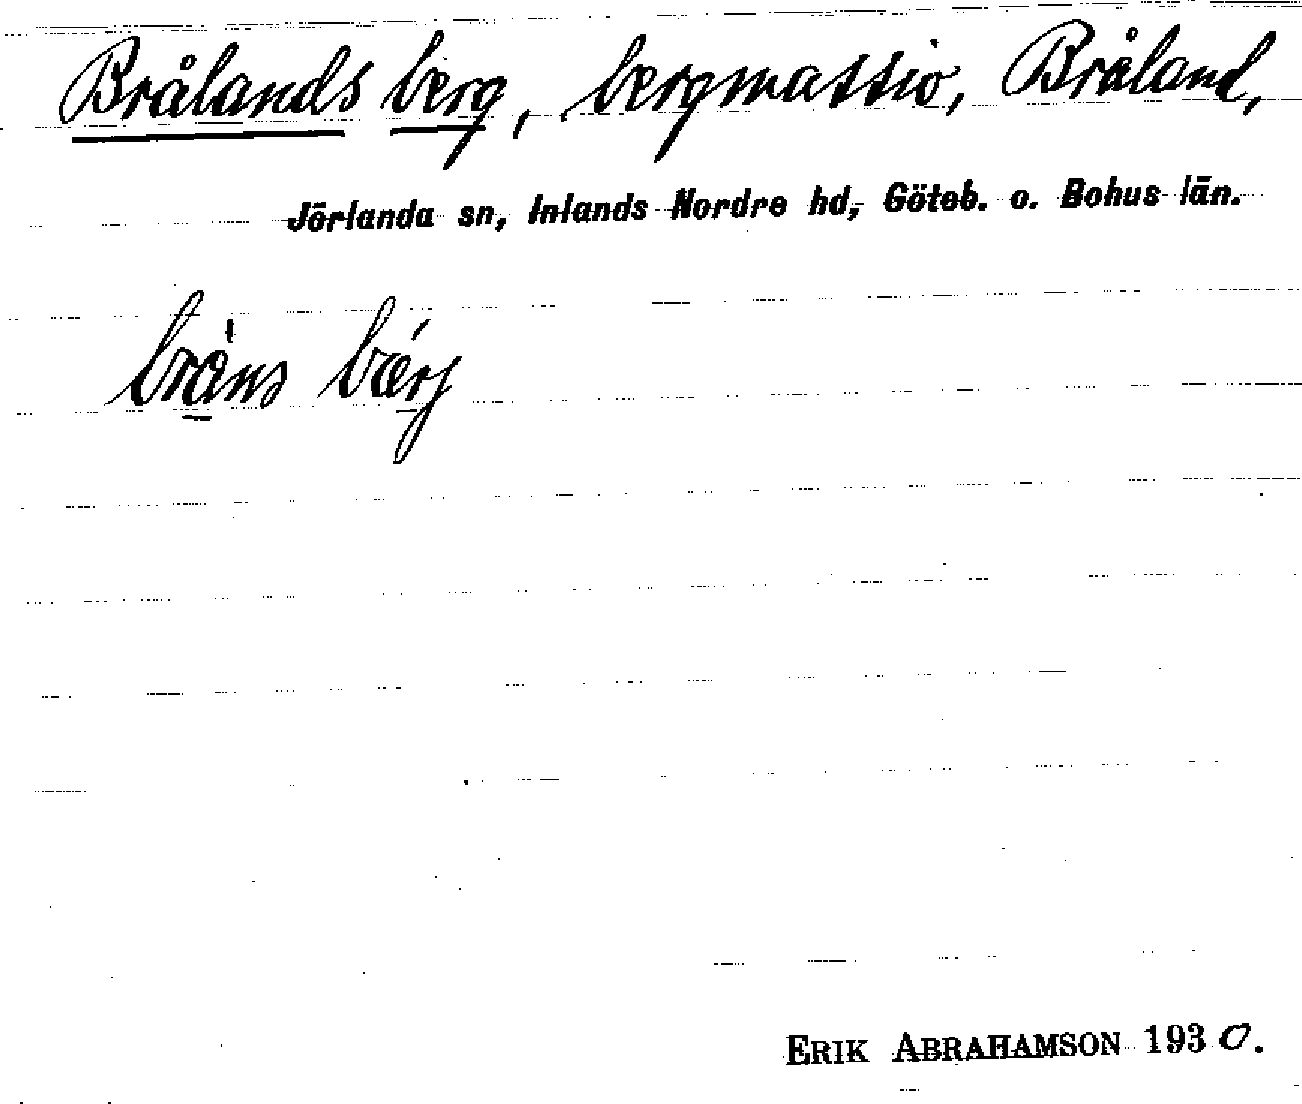 Brålands berg, bergmassiv, Bråland,
Jörlanda sn, Inlands Nordre hd, Göteb. o. Bohus län.
bräns bærj
ERIK ABRAHAMSON 1930.